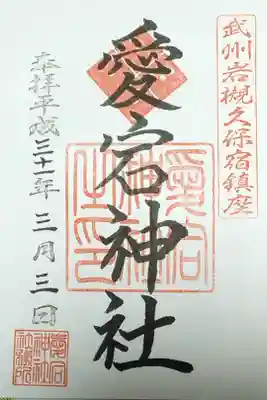 武州岩槻久保宿鎮座
愛宕神社
愛宕
神社
之印
奉拝平成三十一年三月三日
愛宕
神社
社務所